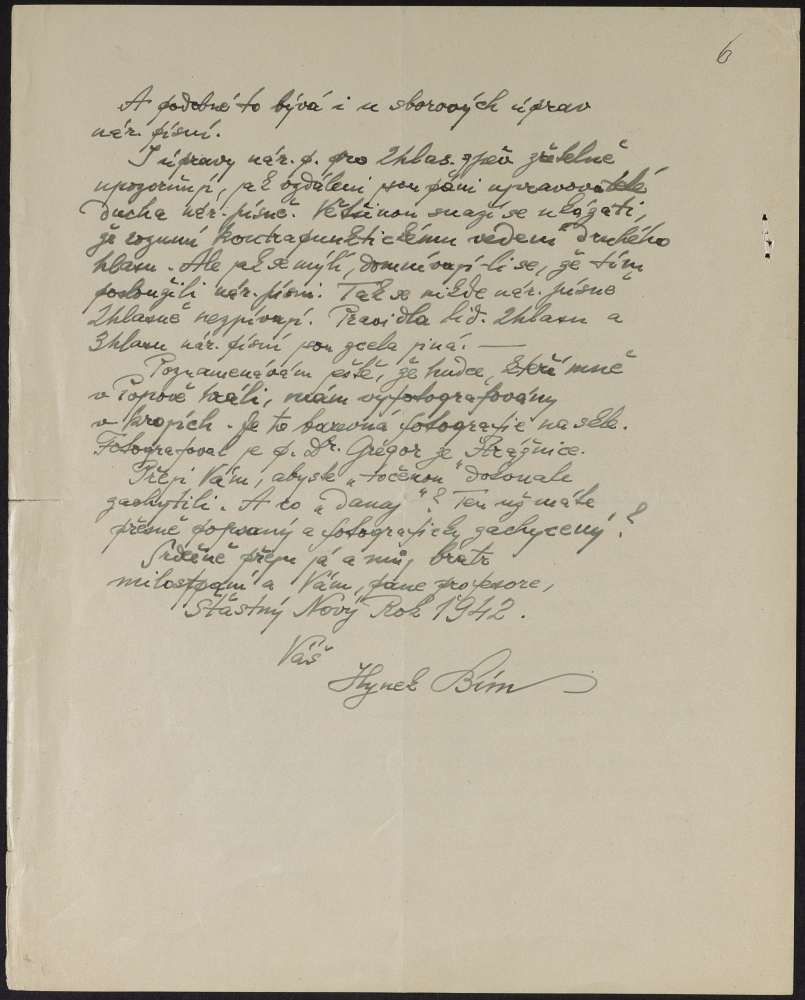 6
A podobně to bývá i u sborových úprav
nár. písní.
I úpravy nár. p. pro 2hlas. zpěv zřetelně
upozorňují, jak vzdáleni jsou páni upravovatelé
ducha nár. písně. Většinou snaží se ukázati,
že rozumí kontrapunktickému vedení druhého
hlasu. Ale jak se mýlí, domnívají-li se, že tím
posloužili nár. písni. Tak se nikde nár. písně
2hlasně nezpívají. Pravidla lid. 2hlasu a
3hlasu nár. písní jsou zcela jiná. —
Poznamenávám ještě, že hudce, kteří mně
v Popově hráli, mám vyfotografovány
v krojích. Je to barevná fotografie na skle.
Fotografoval je p. Dr. Grégor ze Strážnice.
Přeji Vám, abyste „točenou" dokonale
zachytili. A co „danaj"? Ten už máte
přesně popsaný a fotograficky zachycený?
Srdečně přeju já a můj bratr
milostpaní a Vám, pane profesore,
Šťastný Nový Rok 1942.
Váš
Hynek Bím